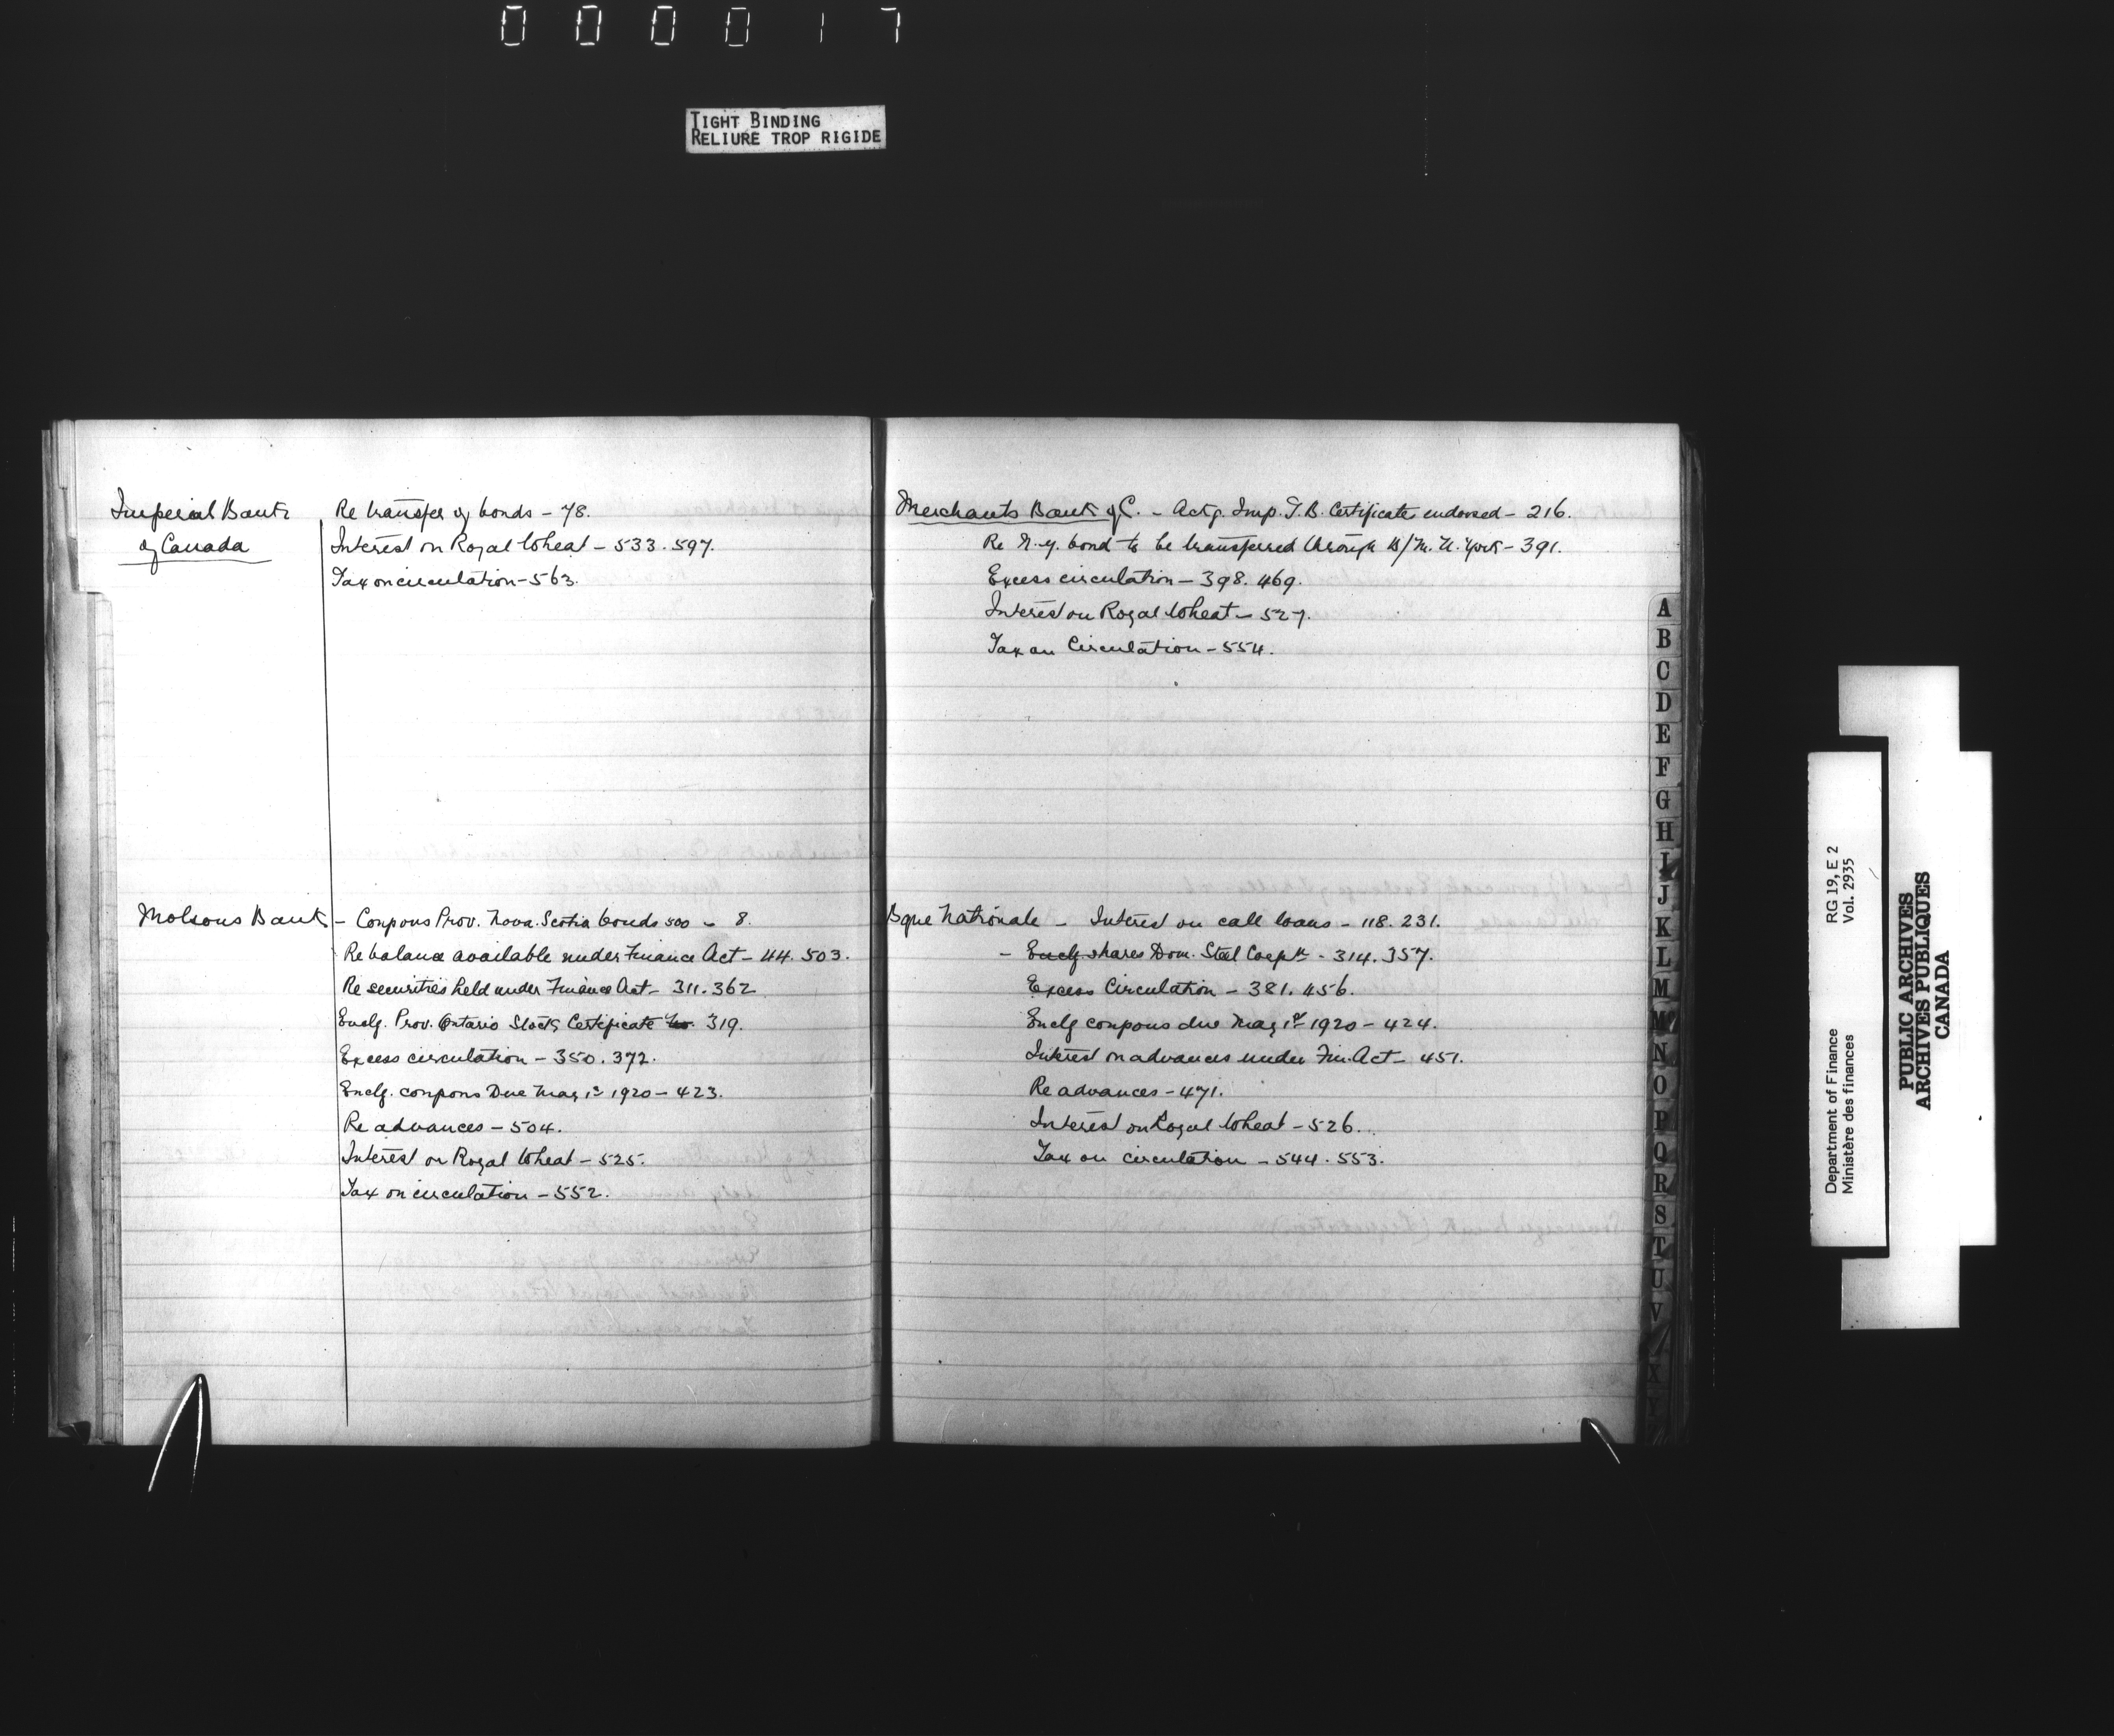 000017
TIGHT BINDING
RELIURE TROP RIGIDE
Imperial Bank
of Canada
Re transfer of bonds - 78.
Interest on Royal Wheat - 533. 597.
Tax on circulation - 563.
Molsons Bank - Coupons Prov. Nova. Scotia bonds 500 - 8.
Re balance available under Finance Act - 44. 503.
Re securities held under Finance Act - 311. 362
Enclg. Prov. Ontario Stock Certificate 319.
Excess circulation - 350. 372.
Enclg. coupons Due May 1st 1920 - 423.
Re advances - 504.
Interest on Royal Wheat - 525.
Tax on circulation - 552.
Merchants Bank of C. - Ackg. Imp. T. B. Certificates endorsed - 216.
Re N.Y. bond to be transferred through B/M. N. York - 391.
Excess circulation - 398. 469.
Interest on Royal Wheat - 527.
Tax on Circulation - 554.
Bque Nationale - Interest on call loans - 118. 231.
- Enclg shares Dom. Steel Corptn - 314. 357.
Excess Circulation - 381. 456.
Enclg coupons due May 1st 1920 - 424.
Interest on advances under Fin. Act - 451.
Re advances - 471.
Interest on Royal Wheat - 526.
Tax on circulation - 544. 553.
A
B
C
D
E
F
G
H
I
J
K
L
M
Mc
N
O
P
Q
R
S
T
U
V
X
Y
Department of Finance RG 19, E 2
Ministère des finances Vol. 2935
PUBLIC ARCHIVES
ARCHIVES PUBLIQUES
CANADA